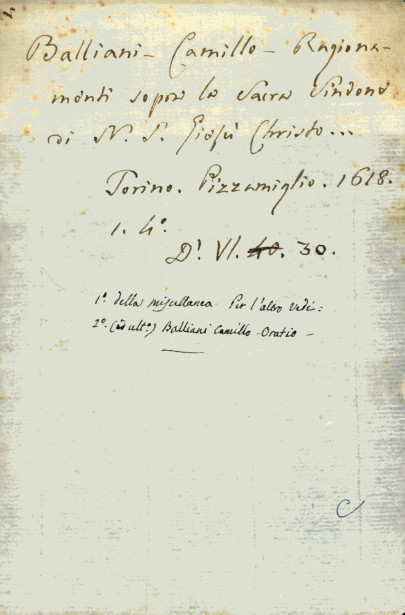 Balliani – Camillo – Ragiona-
menti sopra la Sacra Sindone
di N. S. Giesù Christo...
Torino. Pizzamiglio. 1618.
1. 4º.
D! VI. 40. 30.
1º. della miscellanea. Per l'altro vedi:
2º. (ed ultº.) Balliani Camillo - Oratio -
C